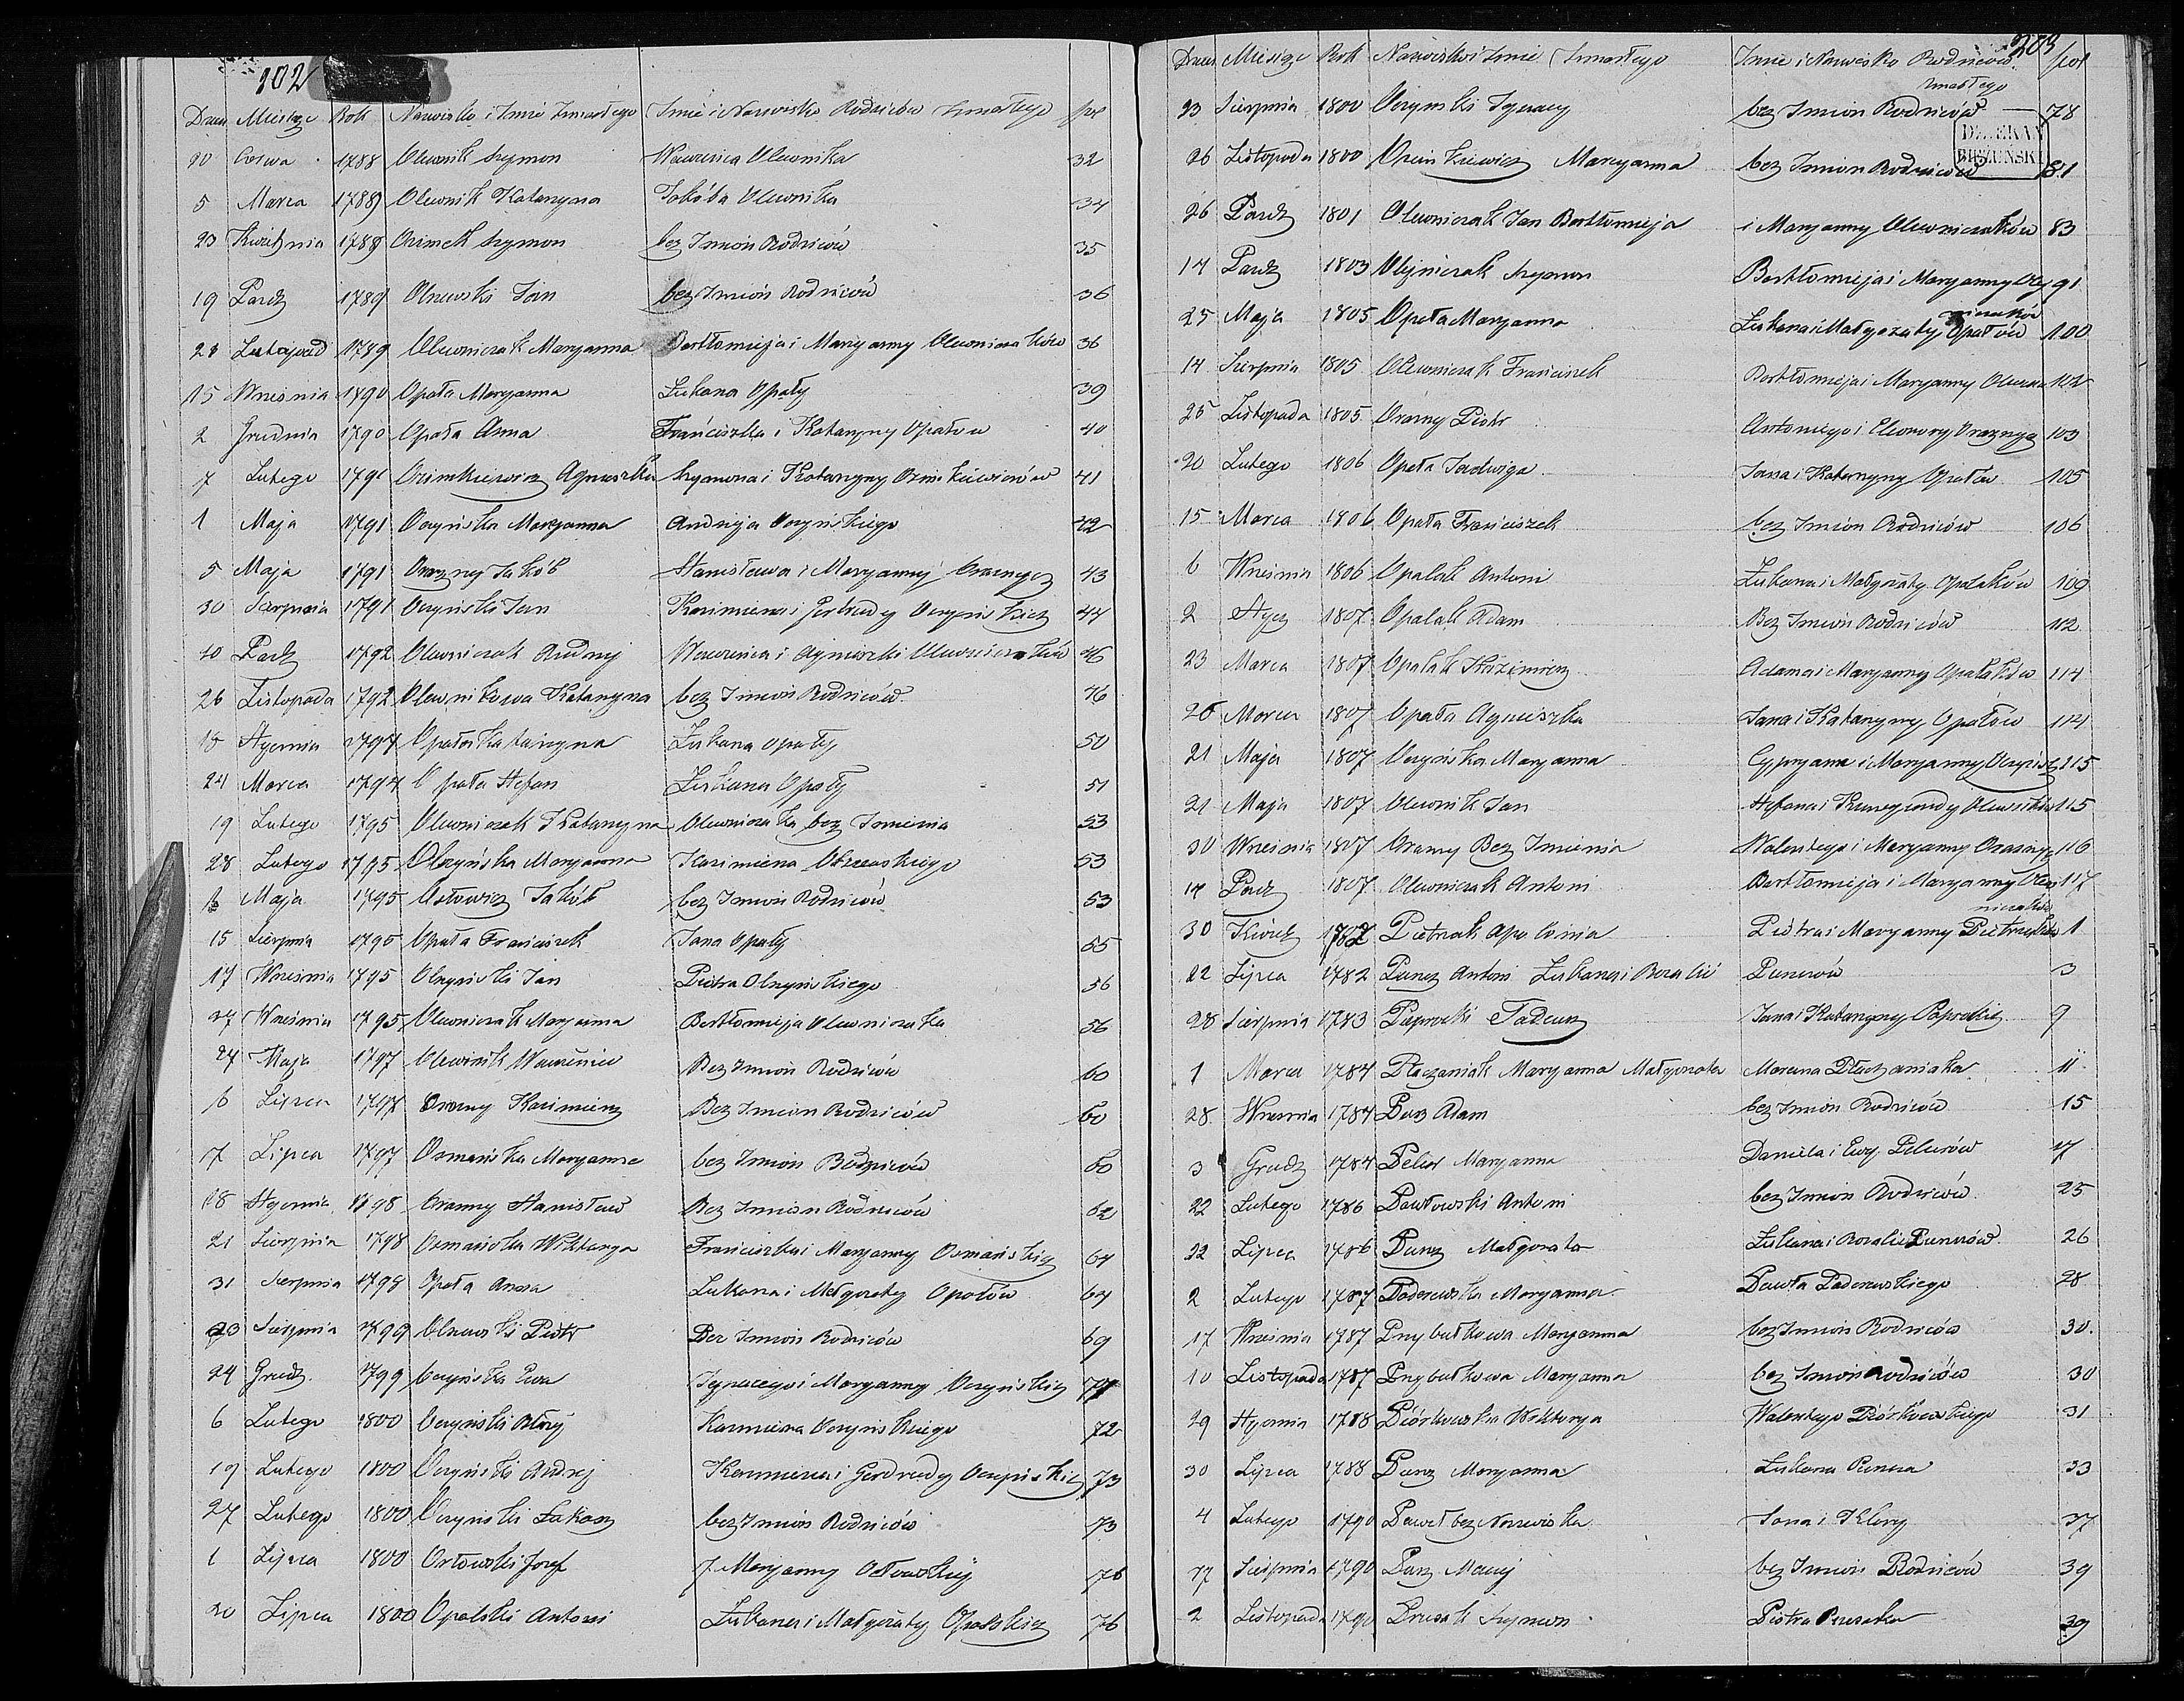 102
Dzień Miesiąc Rok Nazwisko i Imie Zmarłego Imie i Nazwisko Rodziców Zmarłego pol
20 Czerwca 1788 Olewnik Szymon Wawrzenca Olewnika 32
5 Marca 1789 Olewnik Katarzyna Jakóba Olewnika 34
23 Kwietnia 1789 Ozimek Szymon bez Imion Rodziców 35
19 Paźdz 1789 Olszewski Jan bez Imion Rodziców 36
28 Listopad 1789 Olewniczak Maryanna Bartłomieja i Maryanny Olewniczaków 36
15 Wrzesnia 1790 Opała Maryanna Łukasza Opały 39
2 Grudnia 1790 Opała Anna Franciszka i Katarzyny Opałow 40
7 Lutego 1791 Ozimkiewicz Agnieszka Szymona i Katarzyny Ozimkiewiczów 41
1 Maja 1791 Oczyńska Maryanna Andrzeja Oczyńskiego 42
5 Maja 1791 Orazny Jakób Stanisława i Maryanny Oraznych 43
30 Sierpnia 1791 Oczyński Jan Kazimierza i Gertrudy Oczyńskich 44
10 Paźdz 1792 Olewniczak Andrzej Wawrzenca i Agnieszki Olewniczaków 46
26 Listopada 1792 Olewnikowa Katarzyna bez Imion Rodziców 46
18 Stycznia 1794 Opałoska Katarzyna Łukasza Opały 50
24 Marca 1794 Opała Stefan Łukasza Opały 51
19 Lutego 1795 Olewniczak Katarzyna Olewniczaka bez Imienia 53
28 Lutego 1795 Olszyńska Maryanna Kazimierza Olszewskiego 53
Maja 1795 Ostowicz Jakób bez Imion Rodziców 53
15 Sierpnia 1795 Opała Franciszek Jana Opały 55
17 Wrzesnia 1795 Olszyński Jan Piotra Olszyńskiego 56
27 Wrzesnia 1795 Olewniczak Maryanna Bartłomieja Olewniczaka 56
24 Maja 1797 Olewnik Wawrzeniec Bez Imion Rodziców 60
6 Lipca 1797 Orazny Kazimierz Bez Imion Rodziców 60
17 Lipca 1797 Osmańska Maryanna bez Imion Rodziców 60
18 Stycznia 1798 Orazny Stanisław Bez Imion Rodziców 62
21 Sierpnia 1798 Osmańska Wiktorya Franciszka i Maryanny Osmańskich 64
31 Sierpnia 1798 Opała Anna Łukasza i Małgorzaty Opałów 64
23 Sierpnia 1799 Olszewski Piotr Bez Imion Rodziców 69
24 Grudz. 1799 Oczyńska Ewa Ignacego i Maryanny Oczyńskich 71
6 Lutego 1800 Oczyński Błażej Kazimierza Oczyńskiego 72
19 Lutego 1800 Oczyński Andrzej Kazimierza i Gerdrudy Oczyńskich 73
27 Lutego 1800 Oczyński Łukasz bez Imion Rodziców 73
1 Lipca 1800 Orłowski Jozef z Maryanny Orłowskiej 76
20 Lipca 1800 Opalski Antoni Łukasza i Małgorzaty Opalskich 76
203
Dzień Miesiąc Rok Nazwisko i Imie Zmarłego Imie i Nazwisko Rodziców pol
Zmarłego
23 Sierpnia 1800 Oczynski Ignacy bez Imion Rodziców 78
DZIEKAN
BIEŻUŃSKI
26 Listopada 1800 Ozimkiewicz Maryanna bez Imion Rodziców 81
26 Paźdz 1801 Olewniczak Jan Bartłomieja i Maryanny Olewniczaków 83
14 Paźdz 1803 Olejniczak Szymon Bartłomieja i Maryanny Olej 91
niczaków
25 Maja 1805 Opała Maryanna Łukasza i Małgorzaty Opałów 100
14 Sierpnia 1805 Olewniczak Franciszek Bartłomieja i Maryanny 102
25 Listopada 1805 Orazny Piotr Antoniego i Eleonory Oraznych 103
20 Lutego 1806 Opała Jadwiga Jana i Katarzyny Opałów 105
15 Marca 1806 Opała Franciszek bez Imion Rodziców 106
6 Wrzesnia 1806 Opalak Antoni Łukasza i Małgorzaty Opalaków 109
2 Stycz 1807 Opalak Adam Bez Imion Rodziców 112
23 Marca 1807 Opalak Kazimierz Adama i Maryanny Opalaków 114
26 Marca 1807 Opała Agnieszka Jana i Katarzyny Opałów 114
21 Maja 1807 Oczyńska Maryanna Cypryana i Maryanny Oczyńskich 115
21 Maja 1807 Olewnik Jan Stefana i Kunegundy Olewników 115
30 Wrzesnia 1807 Orazny Bez Imienia Walentego i Maryanny Oraznych 116
14 Paźdz 1807 Olewniczak Antoni Bartłomieja i Maryanny Olew 117
niczaków
30 Kwiet 1782 Pietrzak Apolonia Piotra i Maryanny Pietrzaków 1
22 Lipca 1782 Puncz Antoni Łukasza i Rozalii Punczów 3
28 Sierpnia 1783 Paprocki Tadeusz Jana i Katarzyny Paprockich 9
1 Marca 1784 Płaczaniak Maryanna Małgorzata Marcina Płaczaniaka 11
28 Wrzesnia 1784 Pusz Adam bez Imion Rodziców 15
3 Grudz 1784 Pelur Maryanna Daniela i Ewy Pelurów 17
22 Lutego 1786 Pawłowski Antoni bez Imion Rodziców 25
22 Lipca 1786 Puncz Małgorzata Łukasza i Rozalii Punczów 26
2 Lutego 1787 Paderewska Maryanna Pawła Paderewskiego 28
17 Wrzesnia 1787 Przybułkowa Maryanna bez Imion Rodziców 30
10 Listopada 1787 Przybułkowa Maryanna bez Imion Rodziców 30
29 Stycznia 1788 Piórkowska Wiktorya Walentego Piórkowskiego 31
30 Lipca 1788 Puncz Maryanna Łukasza Puncza 33
4 Lutego 1790 Paweł bez Nazwiska Jana i Klary 37
17 Sierpnia 1790 Puncz Maciej bez Imion Rodziców 39
2 Listopada 1790 Prusak Szymon Piotra Prusaka 39